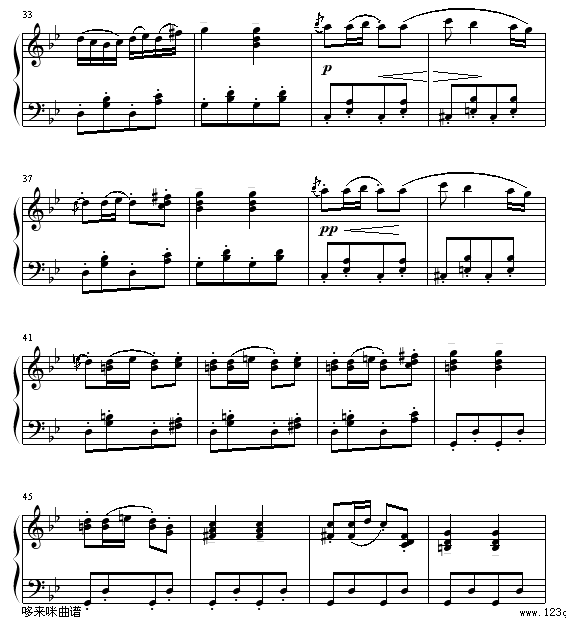 33
p
37
pp
41
45
哆来咪曲谱
www.123